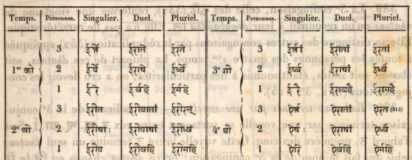 Temps. Personnes. Singulier. Duel. Pluriel. Temps. Personnes. Singulier. Duel. Pluriel.
3 ईर्त्ते ईराते ईरते 3 ईरातां ईरतां
1er 2 ईराथे ईर्ध्वे 3e 2 ईर्ष्व ईराथां ईर्ध्वं
1 ईरे ईर्वहे ईर्महे 1 ईरै ईरावहै ईरामहै
3 ईरीत ईरीयातां ईरीरन् 3 ऐरातां ऐरत
2e 2 ईरीथाः ईरीयाथां ईरीध्वं 4e 2 ऐराथां ऐर्ध्वं
ईरीय ईरीवहि ईरीमहि 1 ऐरि ऐर्वहि ऐर्महि